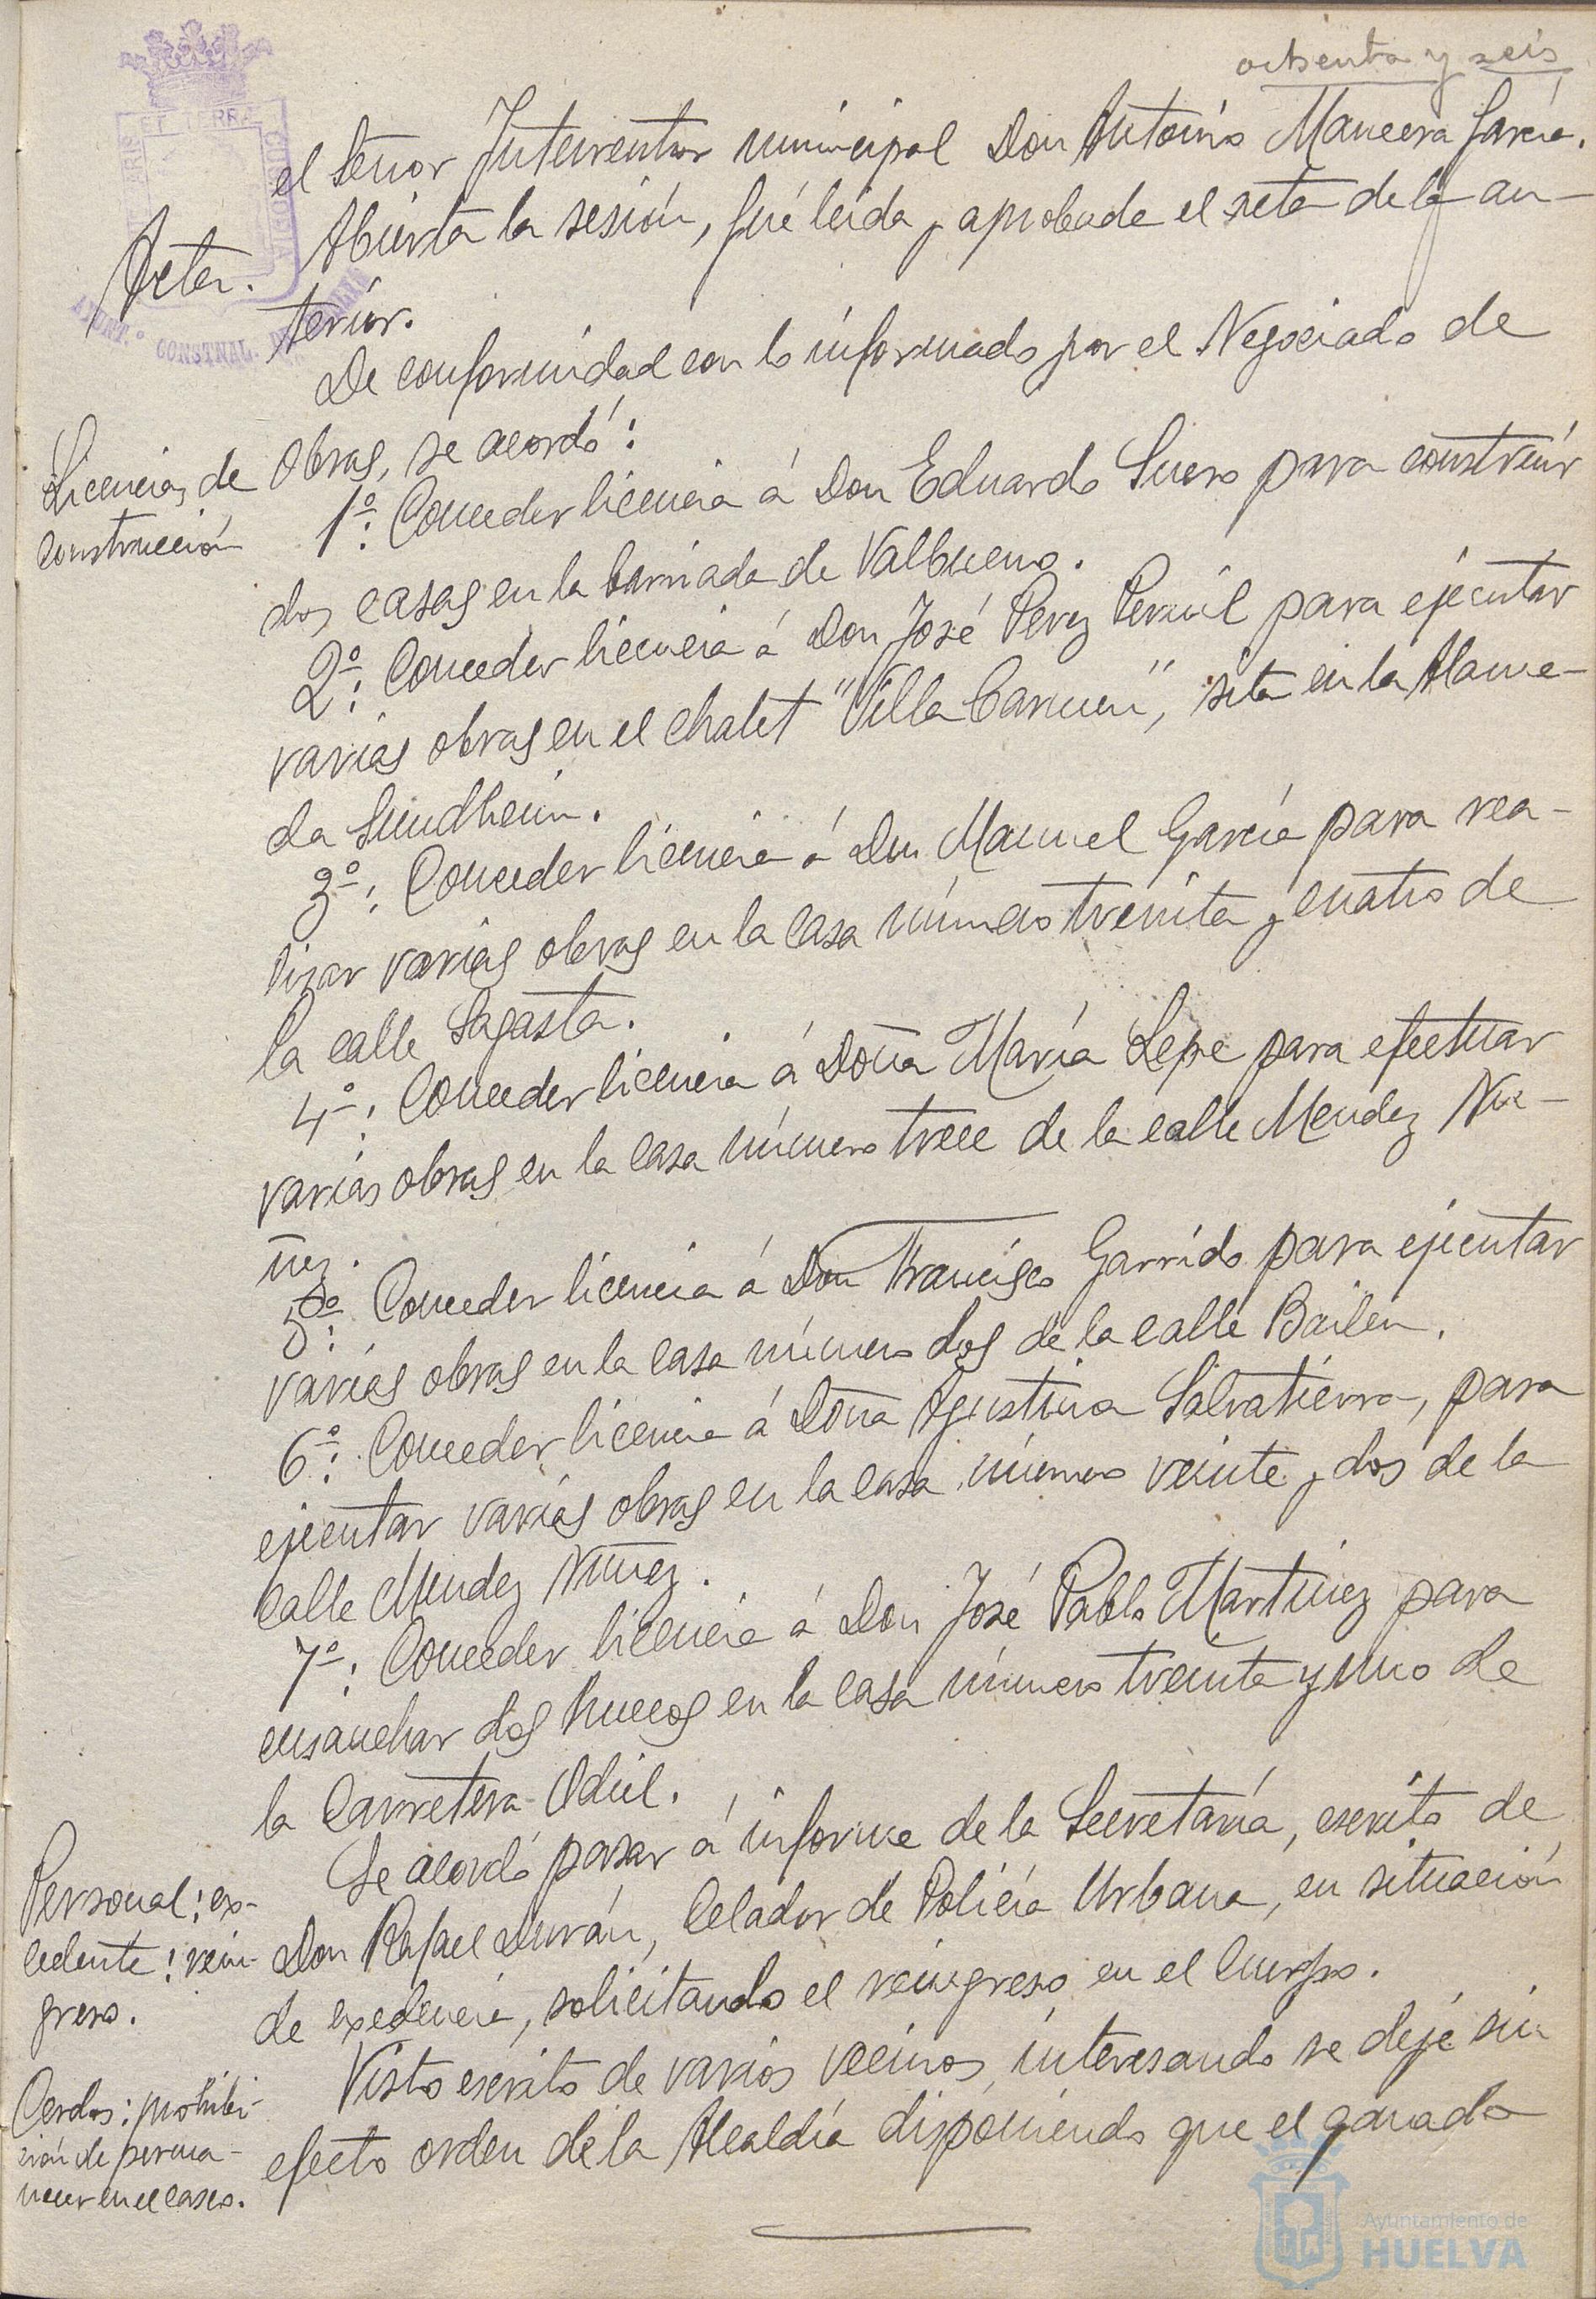 ochenta y seis
el señor Interventor municipal Don Antonio Mancera García.
Acta.
Abierta la sesión, fué leida y aprobada el acta de la an-
terior.
De conformidad con lo informado por el Negociado de
Licencias de
construcción
Obras, se acordó:
1º: Conceder licencia á Don Eduardo Suero para construir
dos casas en la barriada de Valbueno.
2º: Conceder licencia á Don José Perez Pernil para ejecutar
varias obras en el chalet "Villa Carmen", sita en la Alame-
da Sundheim.
3º: Conceder licencia á Don Manuel García para rea-
lizar varias obras en la casa número treinta y cuatro de
la calle Sagasta.
4º: Conceder licencia á Doña María Lepe para efectuar
varias obras en la casa número trece de la calle Mendez Nu-
ñez.
5º: Conceder licencia á Don Francisco Garrido para ejecutar
varias obras en la casa número dos de la calle Bailen.
6º: Conceder licencia á Doña Agustina Salvatierra, para
ejecutar varias obras en la casa número veinte y dos de la
calle Mendez Nuñez.
7º: Conceder licencia á Don José Pablo Martínez para
ensanchar dos huecos en la casa número treinta y uno de
la Carretera Odiel.
Personal: ex-
cedente: rein-
greso.
Se acordó pasar á informe de la Secretaría, escrito de
Don Rafael Durán, Celador de Policía Urbana, en situación
de exedencia, solicitando el reingreso en el Cuerpo.
Cerdos: prohibi-
ción de perma-
necer en el casco.
Visto escrito de varios vecinos, interesando se deje sin
efecto orden de la Alcaldía disponiendo que el ganado
ET TERRA
CUSTODIA
AYUNT.º CONSTNAL.
Ayuntamiento de
HUELVA